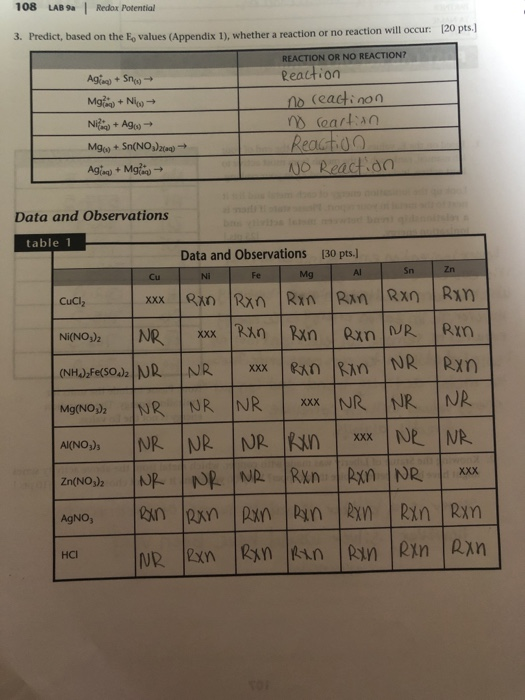 108 LAB 9a | Redox Potential
3. Predict, based on the E₀ values (Appendix 1), whether a reaction or no reaction will occur: [20 pts.]
REACTION OR NO REACTION?
Ag⁺(aq) + Sn(s) → Reaction
Mg²⁺(aq) + Ni(s) → no reactinon
Ni²⁺(aq) + Ag(s) → no reaction
Mg(s) + Sn(NO₃)₂(aq) → Reaction
Ag⁺(aq) + Mg²⁺(aq) → NO Reaction
Data and Observations
table 1
Data and Observations [30 pts.]
Cu Ni Fe Mg Al Sn Zn
CuCl₂ XXX Rxn Rxn Rxn Rxn Rxn Rxn
Ni(NO₃)₂ NR XXX Rxn Rxn Rxn NR Rxn
(NH₄)₂Fe(SO₄)₂ NR NR XXX Rxn Rxn NR Rxn
Mg(NO₃)₂ NR NR NR XXX NR NR NR
Al(NO₃)₃ NR NR NR Rxn XXX NR NR
Zn(NO₃)₂ NR NR NR Rxn Rxn NR XXX
AgNO₃ Rxn Rxn Rxn Rxn Rxn Rxn Rxn
HCl NR Rxn Rxn Rxn Rxn Rxn Rxn